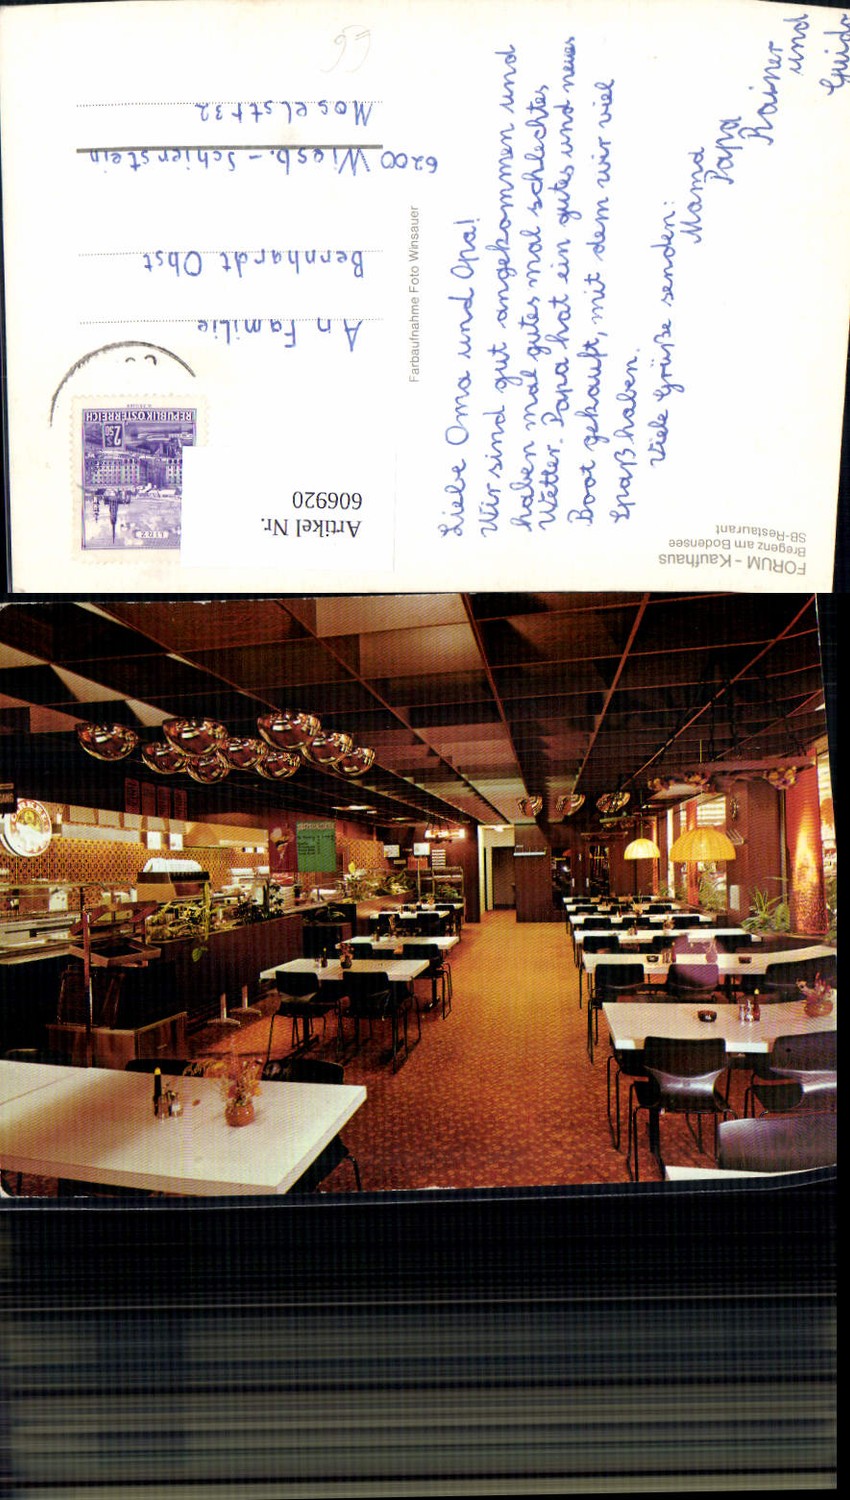 FORUM - Kaufhaus
Bregenz am Bodensee
SB-Restaurant
Liebe Oma und Opa!
Wir sind gut angekommen und
haben mal gutes mal schlechtes
Wetter. Papa hat ein gutes und neues
Boot gekauft, mit dem wir viel
Spaß haben.
Viele Grüße senden:
Mama
Papa
Rainer
und
Guido
Farbaufnahme Foto Winsauer
LINZ
2.50
REPUBLIK ÖSTERREICH
Artikel Nr.
606920
An Familie
Bernhardt Obst
6200 Wiesb.-Schierstein
Moselstr 32